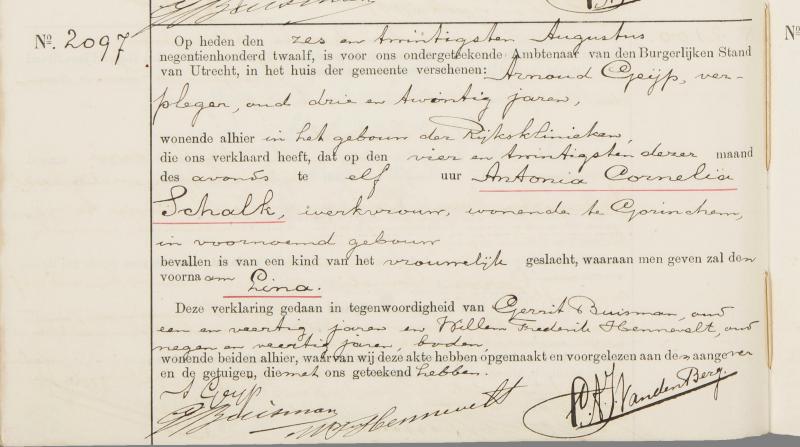 G Buisman
No. 2097
Op heden den zes en twintigsten Augustus
negentienhonderd twaalf, is voor ons ondergeteekende Ambtenaar van den Burgerlijken Stand
van Utrecht, in het huis der gemeente verschenen: Arnoud Geijp, ver-
pleger, oud drie en twintig jaren,
wonende alhier in het gebouw der Rijksklinieken,
die ons verklaard heeft, dat op den vier en twintigsten dezer maand
des avonds te elf uur Antonia Cornelia
Schalk, werkvrouw, wonende te Gorinchem,
in voornoemd gebouw
bevallen is van een kind van het vrouwelijk geslacht, waaraan men geven zal den
voornaam Lina.
Deze verklaring gedaan in tegenwoordigheid van Gerrit Buisman, oud
een en veertig jaren en Willem Frederik Hennevelt, oud
negen en veertig jaren, boden,
wonende beiden alhier, waarvan wij deze akte hebben opgemaakt en voorgelezen aan den aangever
en de getuigen, die met ons geteekend hebben.
A Geijp
G Buisman WF Hennevelt VandenBerg.
No